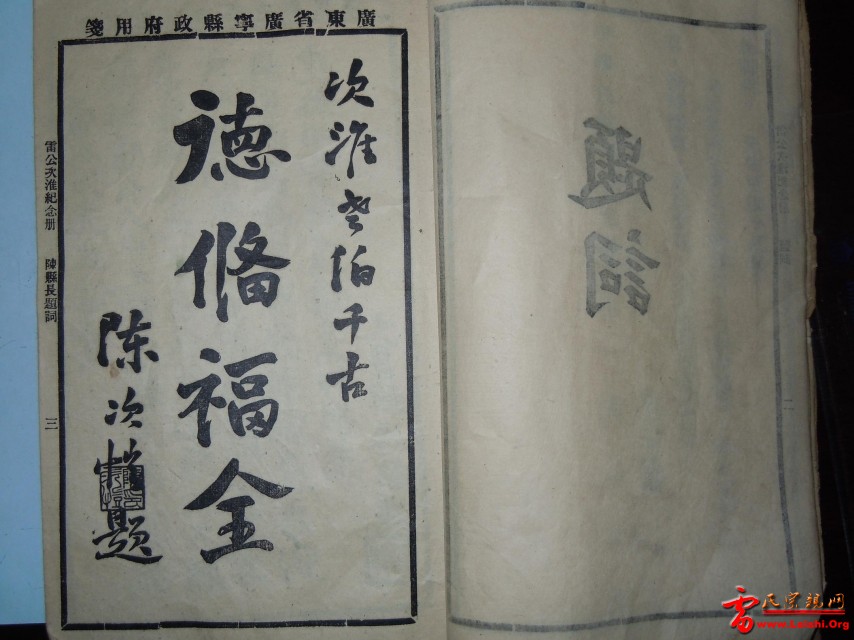 廣東省廣寧縣政府用箋
次淮老伯千古
德備福全
陈次題
雷公次淮紀念册 陳縣長題詞 三
題詞
雷氏宗親网
www.Leishi.Org